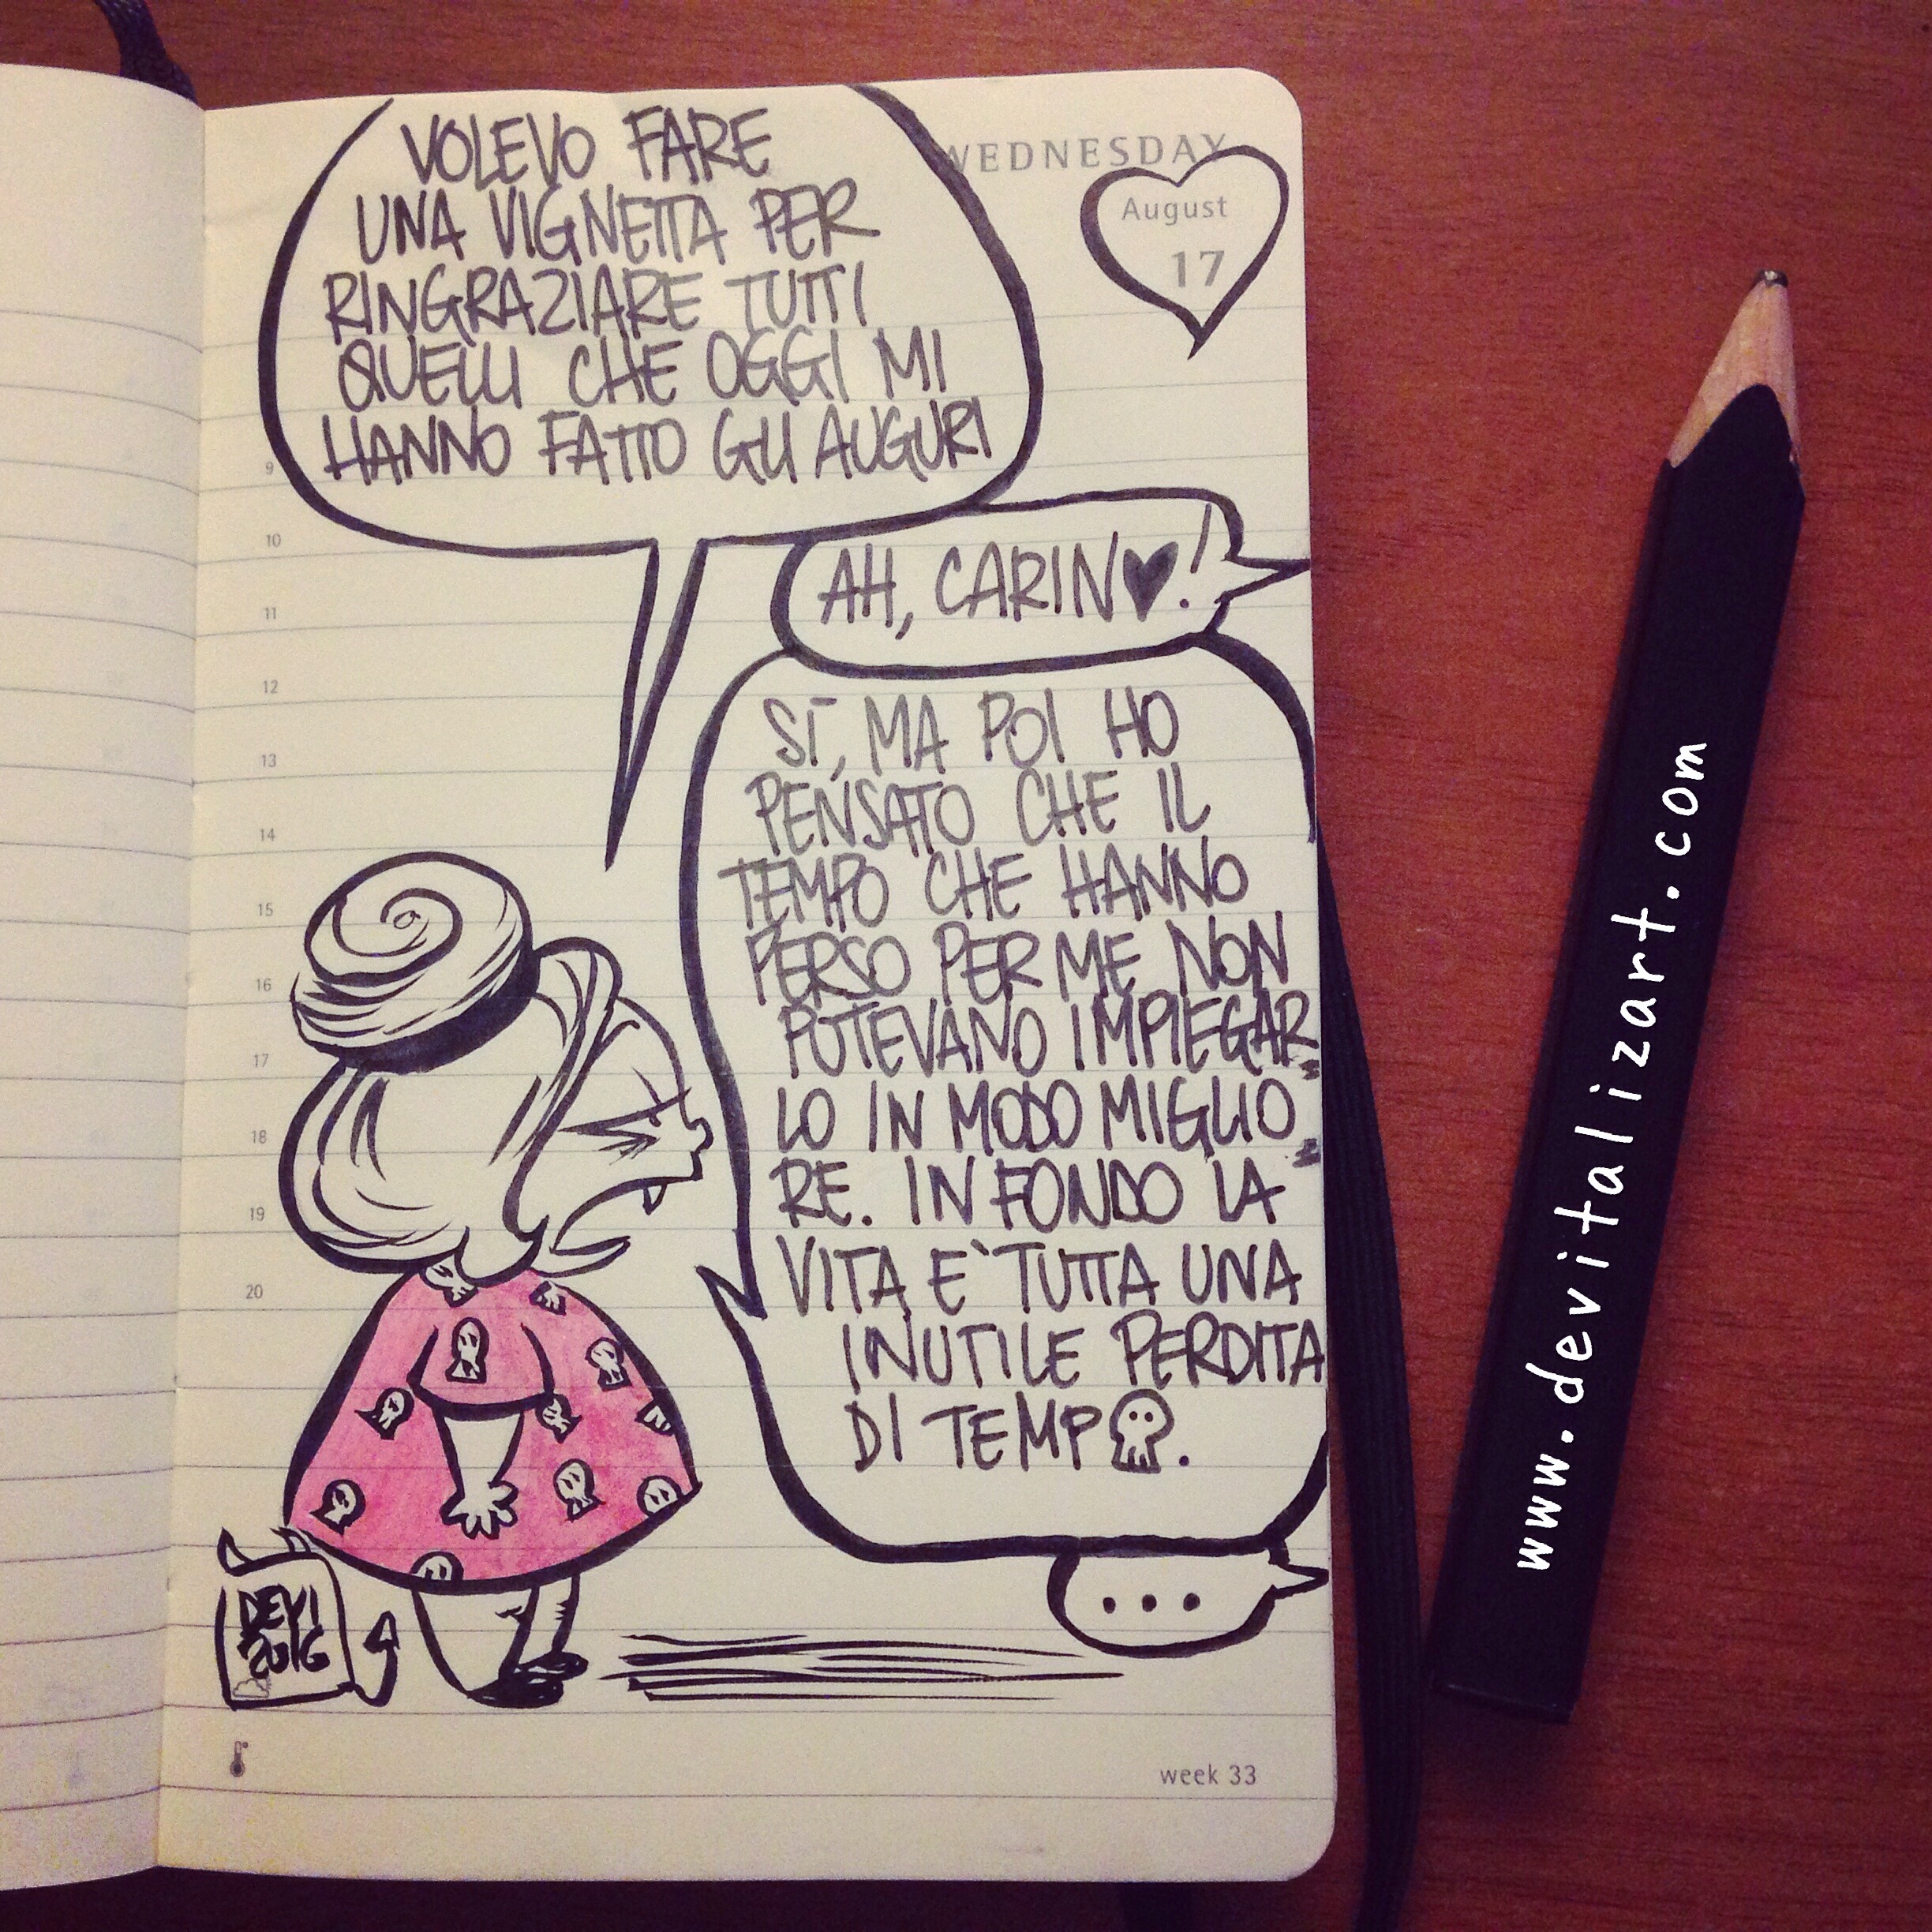 VOLEVO FARE
UNA VIGNETTA PER
RINGRAZIARE TUTTI
QUELLI CHE OGGI MI
HANNO FATTO GLI AUGURI
WEDNESDAY
August
17
AH, CARIN♥!
SÌ, MA POI HO
PENSATO CHE IL
TEMPO CHE HANNO
PERSO PER ME NON
POTEVANO IMPIEGAR
LO IN MODO MIGLIO
RE. IN FONDO LA
VITA E` TUTTA UNA
INUTILE PERDITA
DI TEMP💀.
...
9
10
11
12
13
14
15
16
17
18
19
20
DEVI
2016
week 33
www.devitalizart.com